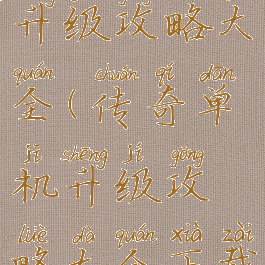 升级攻略大
quán chuán qí dān
全(传奇单
jī shēng jí gōng
机升级攻
lüè dà quán xià zài
略大全下载